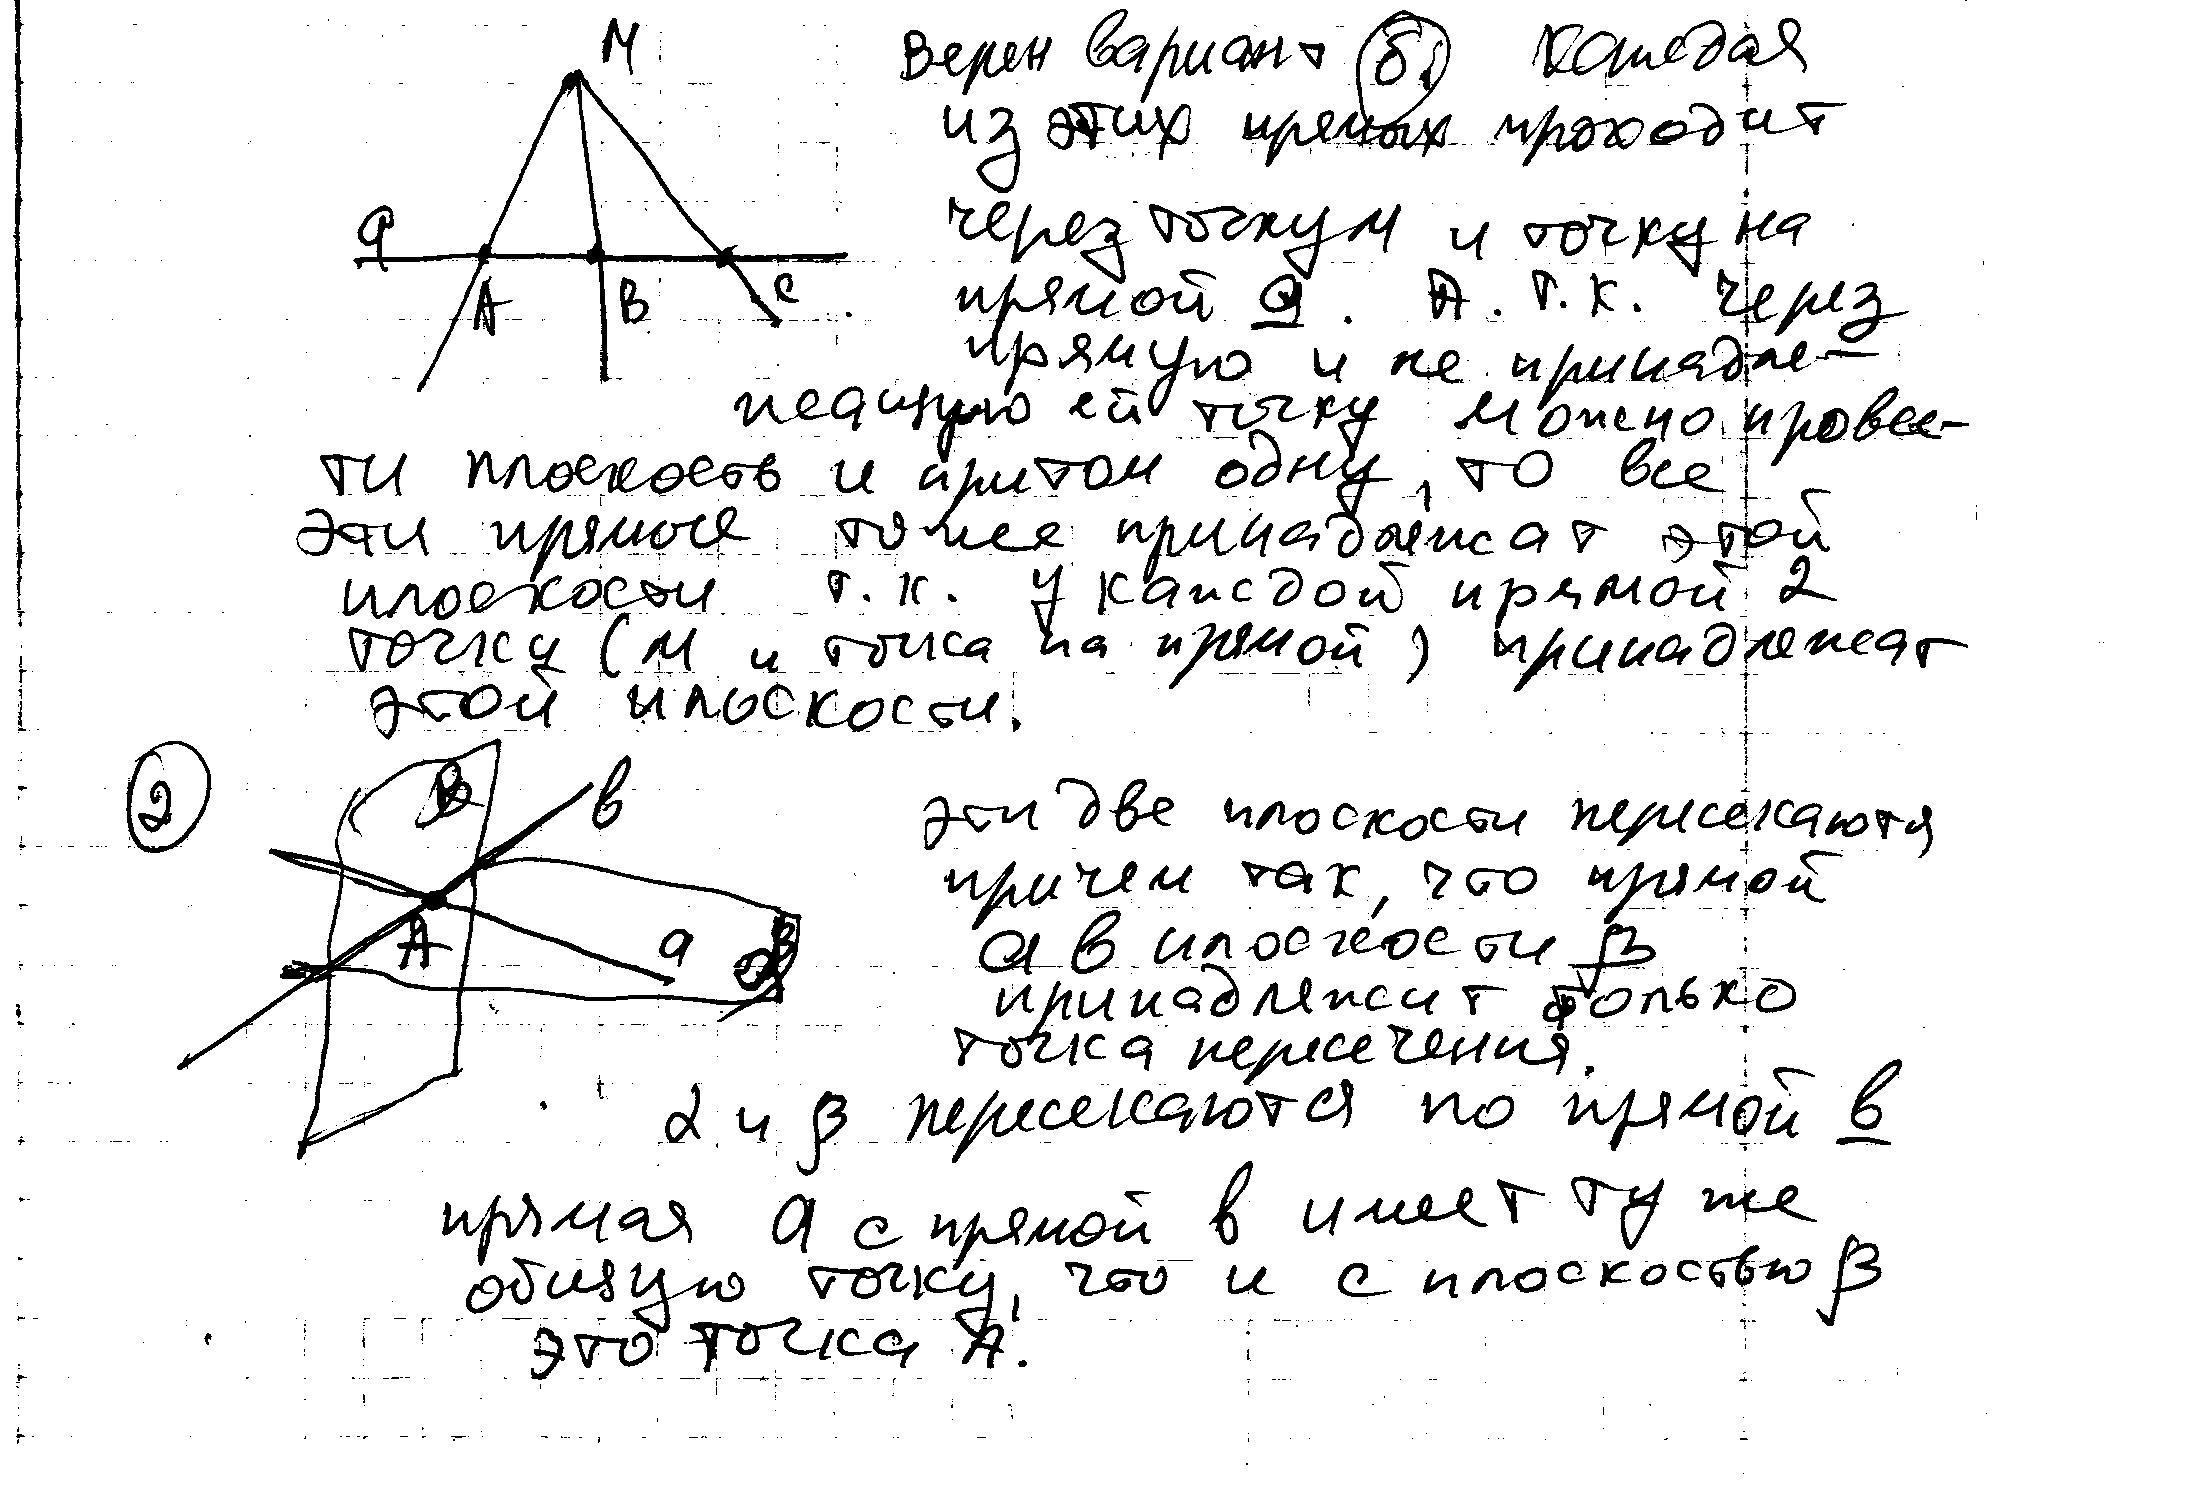 М
Верен вариант б) Каждая
из этих прямых проходит
a
через точку М и точку на
А В С
прямой a. А. т.к. через
прямую и не принадле-
жащую ей точку можно провес-
ти плоскость и притом одну, то все
эти прямые тоже принадлежат этой
плоскости т.к. у каждой прямой 2
точки (М и точка на прямой) принадлежат
этой плоскости.
2
β в
эти две плоскости пересекаются,
причем так, что прямой
А a
a в плоскости β
принадлежит только
точка пересечения.
α и β пересекаются по прямой в
прямая a с прямой в имеет ту же
общую точку, что и с плоскостью β
это точка А.